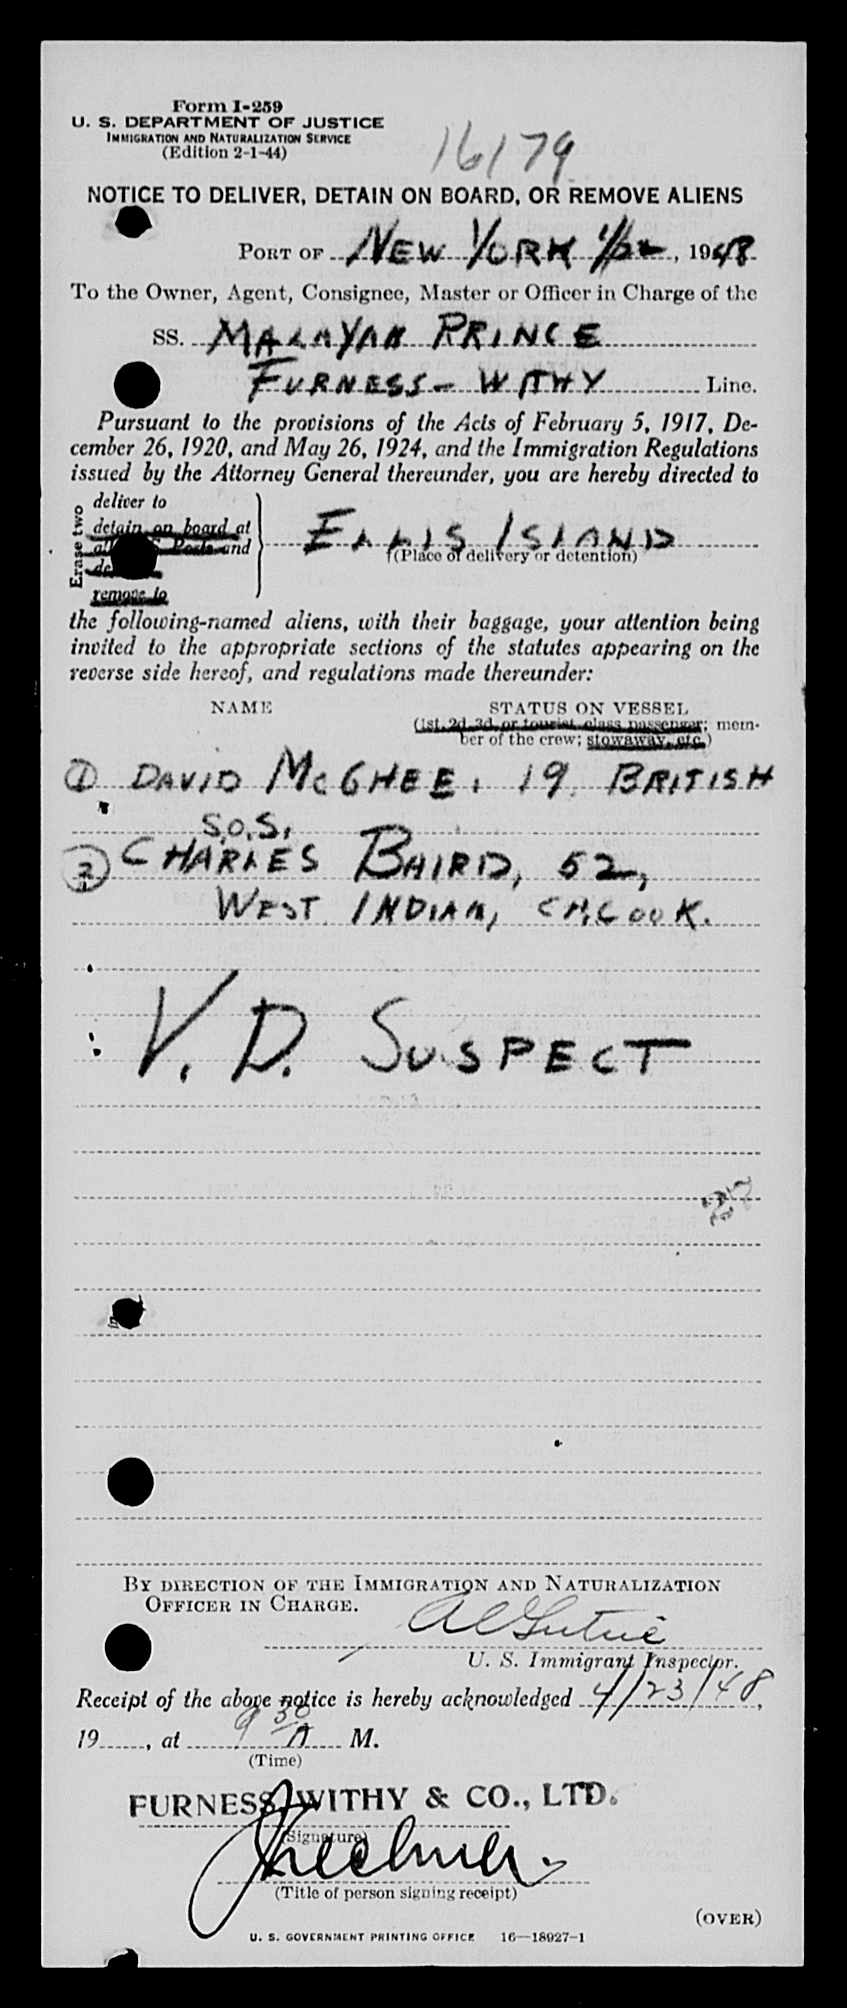 Form I-259
U. S. DEPARTMENT OF JUSTICE
IMMIGRATION AND NATURALIZATION SERVICE
(Edition 2-1-44)
16179
NOTICE TO DELIVER, DETAIN ON BOARD, OR REMOVE ALIENS
PORT OF NEW YORK 1948
To the Owner, Agent, Consignee, Master or Officer in Charge of the
SS. MALAYAN PRINCE
FURNESS-WITHY Line.
Pursuant to the provisions of the Acts of February 5, 1917, De-
cember 26, 1920, and May 26, 1924, and the Immigration Regulations
issued by the Attorney General thereunder, you are hereby directed to
Erase two
deliver to
detain on board at
and
remove to
ELLIS ISLAND
(Place of delivery or detention)
the following-named aliens, with their baggage, your attention being
invited to the appropriate sections of the statutes appearing on the
reverse side hereof, and regulations made thereunder:
NAME STATUS ON VESSEL
(1st, 2d, 3d, or tourist class passenger; mem-
ber of the crew; stowaway, etc.)
1 DAVID McGHEE, 19, BRITISH
S.O.S.
2 CHARLES BAIRD, 52,
WEST INDIAN, CH. COOK.
V.D. SUSPECT
27
BY DIRECTION OF THE IMMIGRATION AND NATURALIZATION
OFFICER IN CHARGE.
U. S. Immigrant Inspector.
Receipt of the above notice is hereby acknowledged 4/23/48,
19, at 9 30 A M.
(Time)
FURNESS, WITHY & CO., LTD.
(Signature)
(Title of person signing receipt)
(OVER)
U. S. GOVERNMENT PRINTING OFFICE 16—18927-1